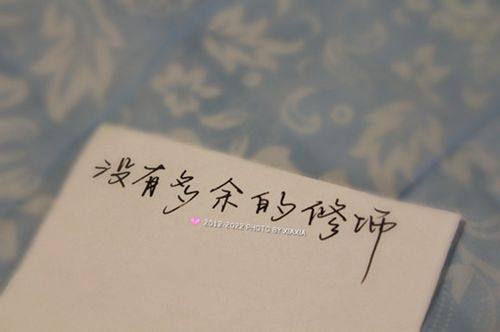 没有多余的修饰
2012/2022 PHOTO BY XIAXIA